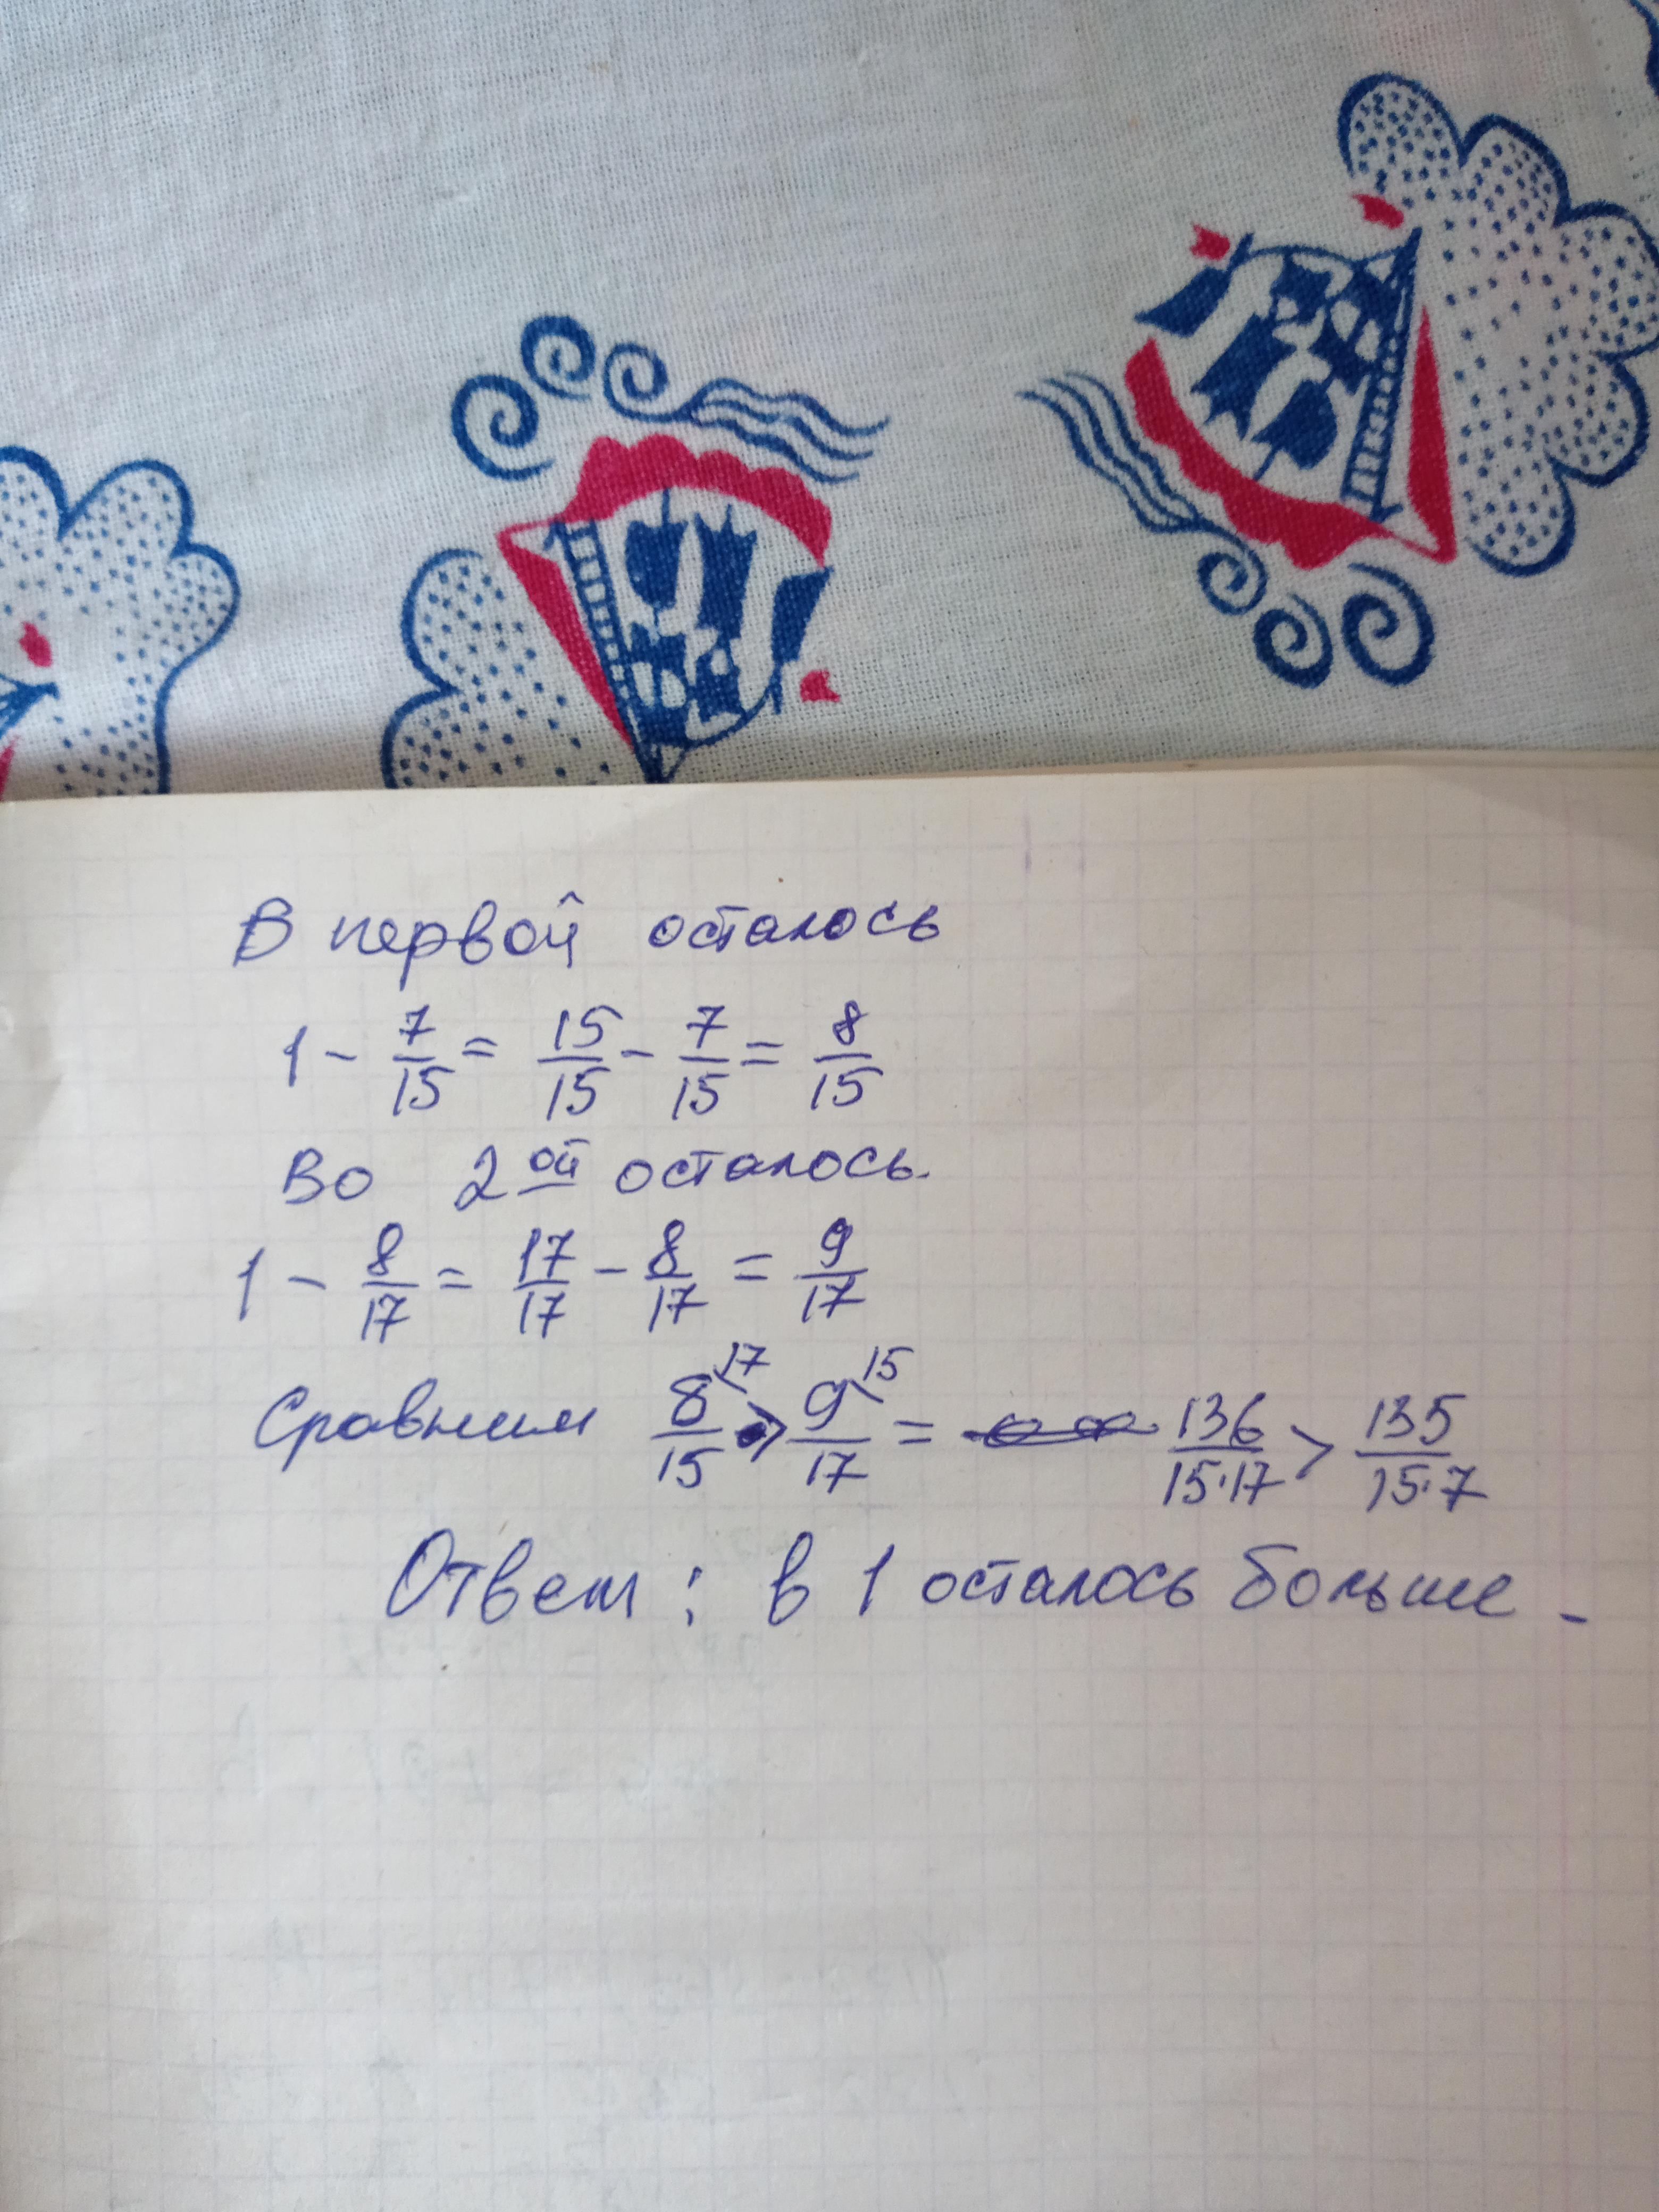 В первой осталось
1 - 7/15 = 15/15 - 7/15 = 8/15
Во 2ой осталось.
1 - 8/17 = 17/17 - 8/17 = 9/17
Сравним 8\17/15 > 9\15/17 = 136/15·17 > 135/15·7
Ответ: в 1 осталось больше -